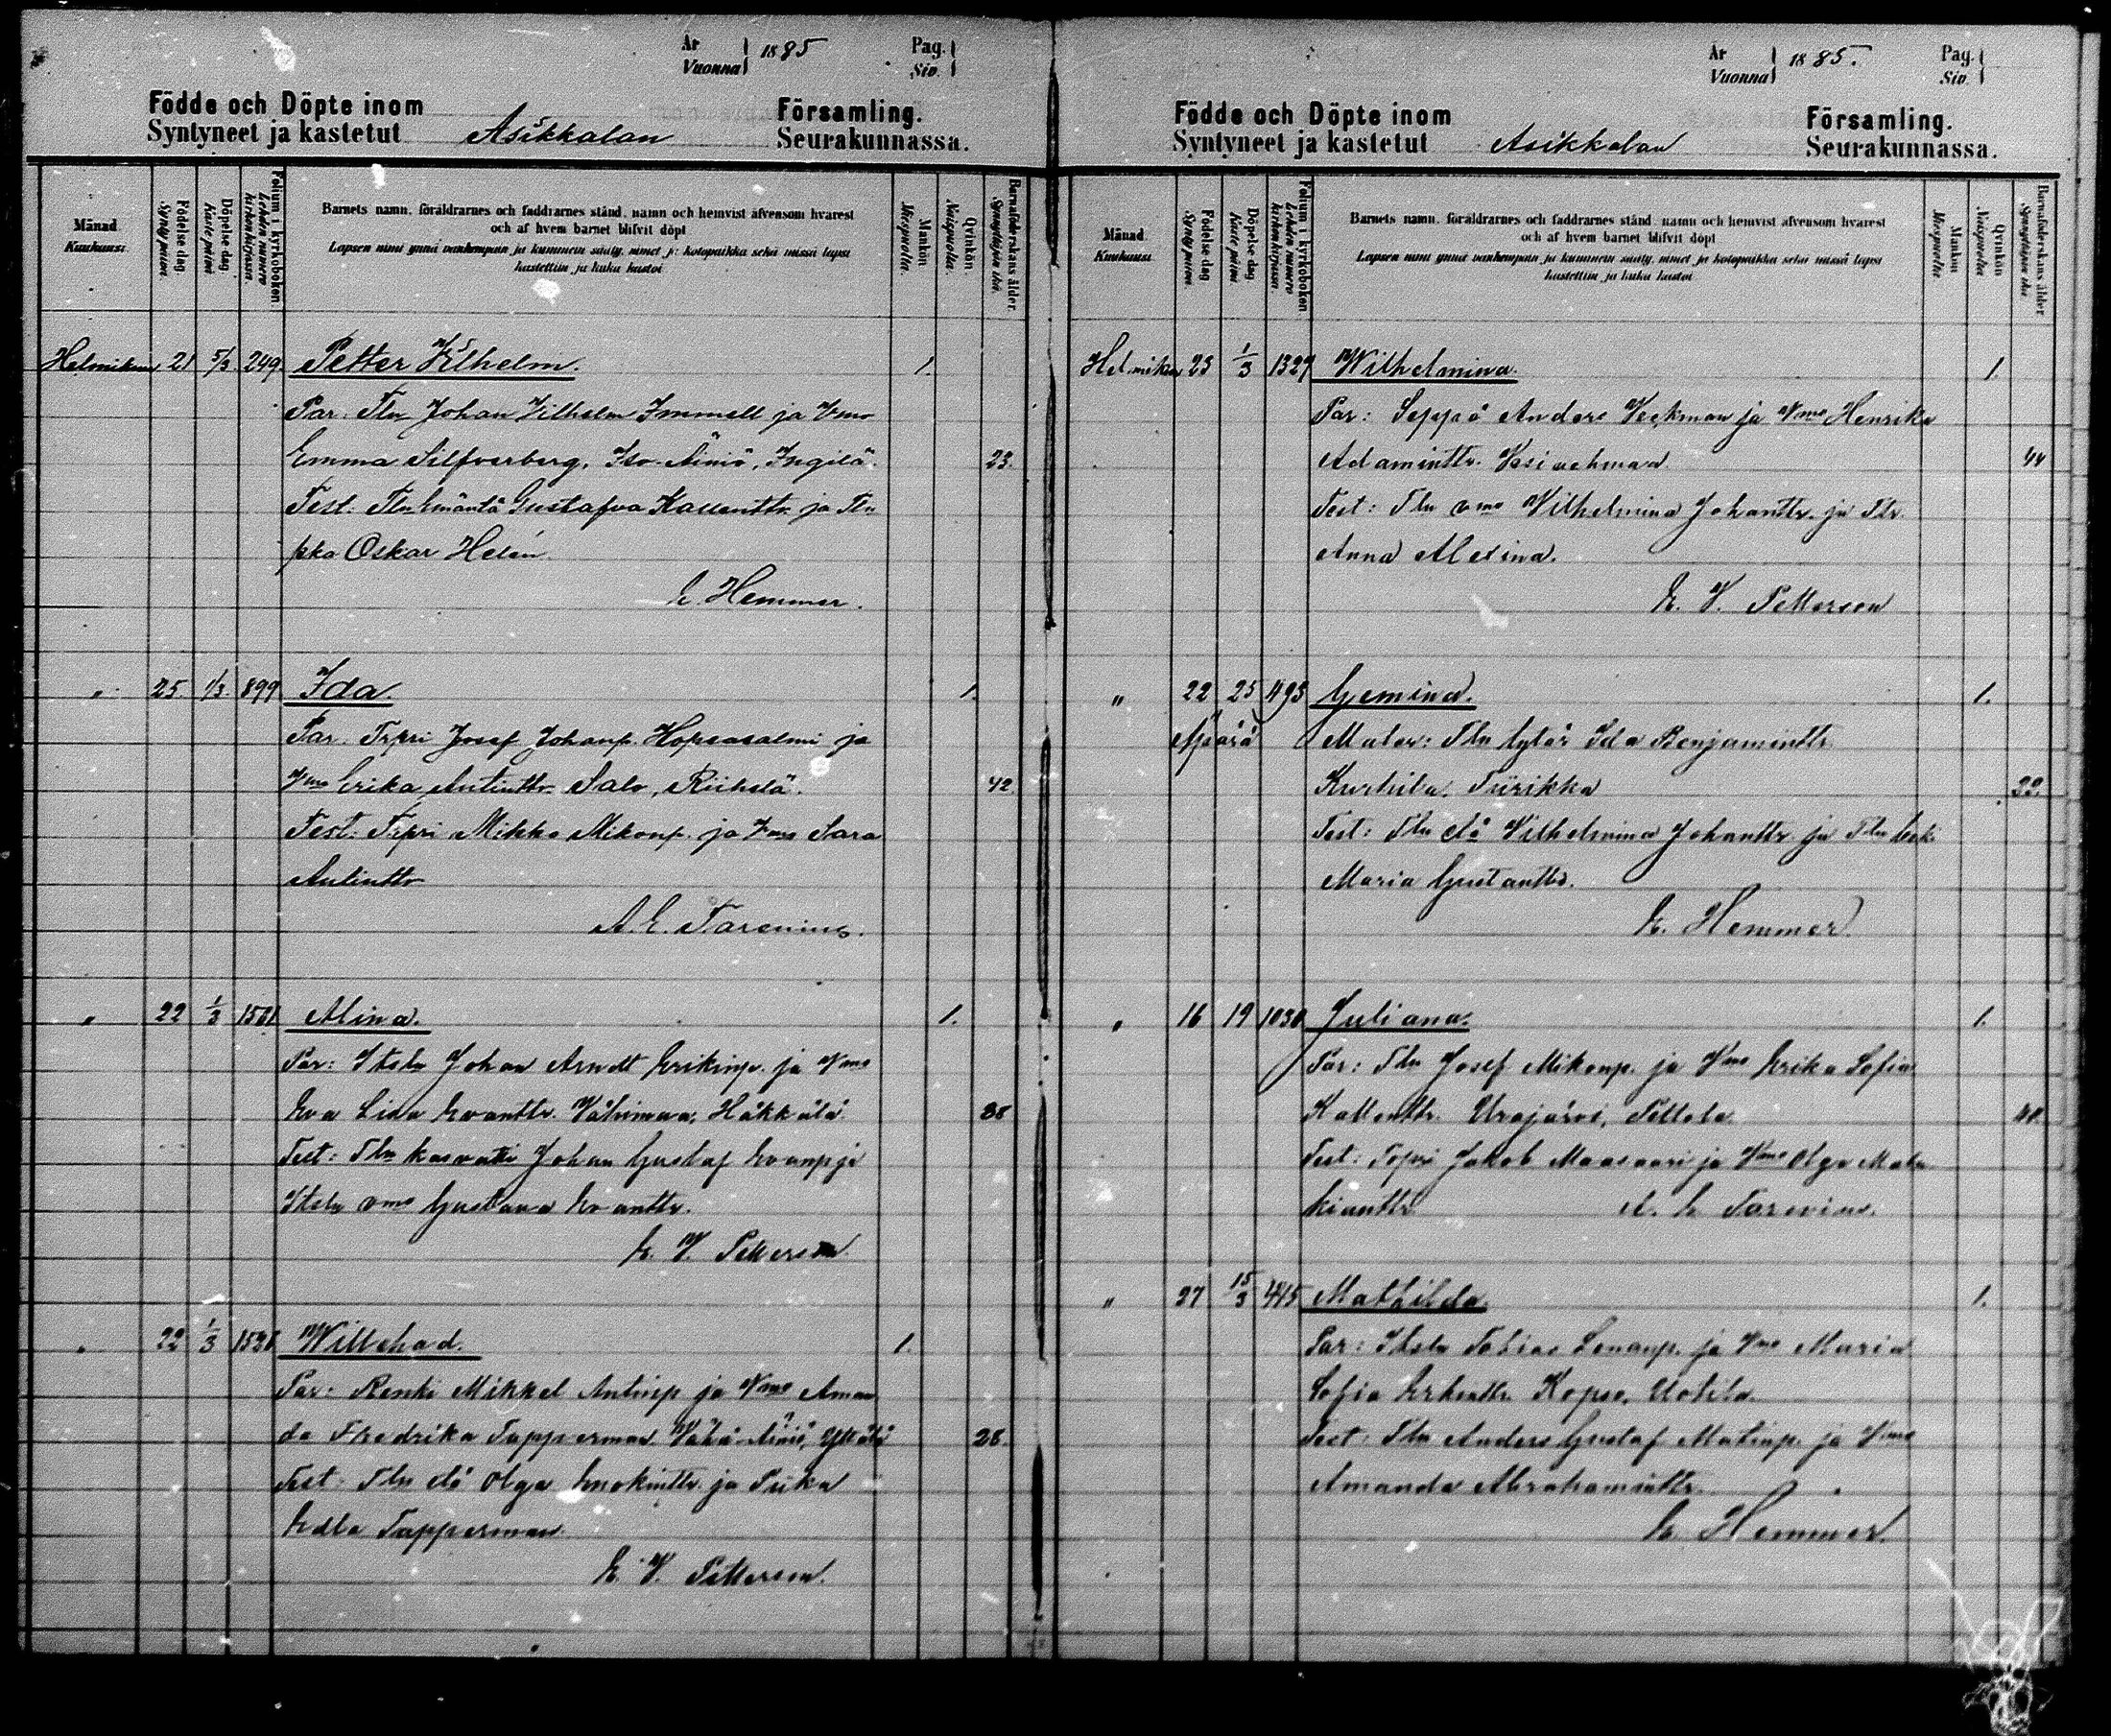 År
Vuonna 1885
Pag.
Siv.
Födde och Döpte inom
Syntyneet ja kastetut Asikkalan
Församling.
Seurakunnassa.
Månad
Kuukausi
Födelse dag
Syntypäivä.
Döpelse dag
Kastepäivä
Folium i kyrkoboken
Lehden numero kirkonkirjassa.
Barnets namn, föräldrarnes och faddrarnes stånd, namn och hemvist äfvensom hvarest
och af hvem barnet blifvit döpt
Lapsen nimi ynnä vanhempain ja kummein sääty, nimet ja kotopaikka sekä missä lapsi
kastettiin ja kuka kastoi
Mankön
Miespuolia.
Qvinkön
Naispuolia.
Barnaföderskans ålder.
Synnyttäjän ikä.
Helmikuu 21 5/3 249 Petter Vilhelm. 1.
Par. Tln Johan Vilhelm Immell ja Vmo
Emma Silfverberg, Iso-Äiniö, 23.
Test: Tln Gustafva Kallenttr ja Tln
pka Oskar Helén
E. Hemmer.
" 25 1/3 899 Ida. 1.
Par. Trpri Josef Johanp. Hopeasalmi ja
Vmo Erika Antinttr Salo, Riihelä. 42.
Test: Trpri Mikko Mikonp. ja Vmo Sara
Antinttr
A. E. Tarenius.
" 22 1/3 1501 Alina. 1.
Par: Itsln Johan Arndt Erikinp. ja Vmo
Eva Lisa Evanttr. Vähimaa, Häkkälä 38
Test: Tln kasvatti Johan Gustaf Evanp ja
Itsln vmo Gustava Evanttr.
E. V. Petterson
" 22 1/3 1538 Willehad. 1.
Par: Renki Mikkel Antinp ja Vmo Aman
da Fredrika Tapperman. Vähä-Äiniö, 28.
Test: Tln Olga Enokinttr. ja Piika
Edla Tapperman.
E. V. Petterson.
År
Vuonna 1885.
Pag.
Siv.
Födde och Döpte inom
Syntyneet ja kastetut Asikkalan
Församling.
Seurakunnassa.
Månad
Kuukausi
Födelse dag
Syntypäivä.
Döpelse dag
Kastepäivä
Folium i kyrkoboken
Lehden numero kirkonkirjassa.
Barnets namn, föräldrarnes och faddrarnes stånd, namn och hemvist äfvensom hvarest
och af hvem barnet blifvit döpt
Lapsen nimi ynnä vanhempain ja kummein sääty, nimet ja kotopaikka sekä missä lapsi
kastettiin ja kuka kastoi
Mankön
Miespuolia
Qvinkön
Naispuolia
Barnaföderskans ålder
Synnyttäjän ikä
Helmiku 23 1/3 1327 Wilhelmina. 1.
Par: Seppä Anders Veckman ja Vmo Henrika
Adaminttr. Vesivehmaa. 44
Test: Tln vmo Wilhelmina Johanttr. ja Tlr.
Anna Alexina.
E. V. Petterson
" 22 25 495 Gemina. 1.
Äpärä Mater: Tln tytär Ida Benjaminttr.
Kurhila. Tiirikka 22.
Test: Tln Vilhelmina Johanttr. ja Tln lesk.
Maria Gustanttr.
E. Hemmer
" 16 19 1030 Juliana. 1.
Par: Tln Josef Mikonp. ja Vmo Erika Sofia
Kallenttr. Urajärvi, Pellola.
Test: Jakob Maasaari ja Vmo Olga Mala
kianttr A. E. Tarenius.
" 27 15/3 445 Mathilda. 1.
Par: Itsln Tobias ja Vmo Maria
Sofia Erkinttr. Kopso, Uotila.
Test: Tln Anders Gustaf Matinp. ja Vmo
Amanda Abrahaminttr.
E. Hemmer.